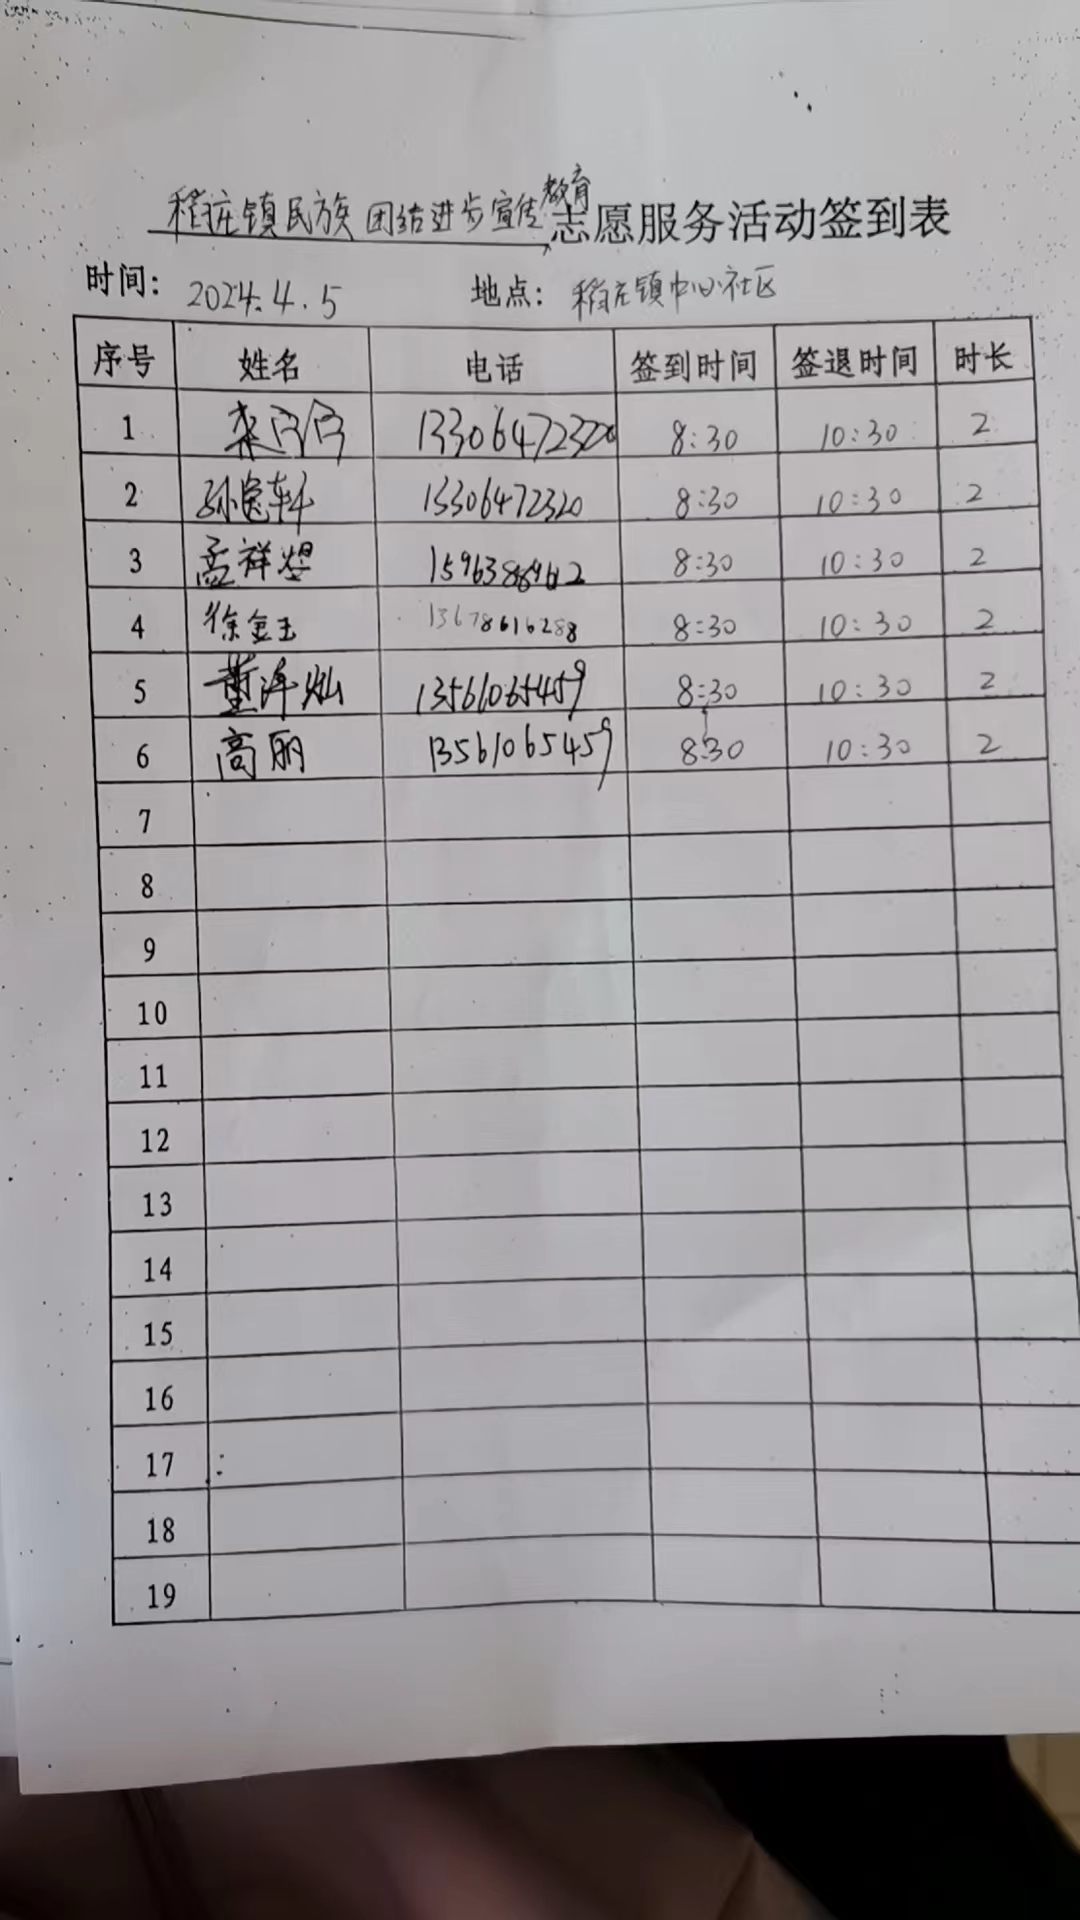 稻庄镇民族团结进步宣传教育志愿服务活动签到表
时间: 2024.4.5 地点: 稻庄镇中心社区
序号 姓名 电话 签到时间 签退时间 时长
1 13306472320 8:30 10:30 2
2 13306472320 8:30 10:30 2
3 孟祥煜 8:30 10:30 2
4 徐金玉 13678616288 8:30 10:30 2
5 董泽灿 13561065459 8:30 10:30 2
6 高丽 13561065459 8:30 10:30 2
7
8
9
10
11
12
13
14
15
16
17
18
19